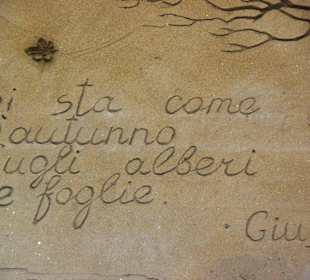 i sta come
autunno
ugli alberi
e foglie.
Giu